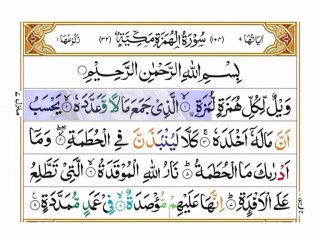 اٰيَاتُهَا ٩ (١٠٤) سُوْرَةُ الْهُمَزَةِ مَكِّيَّةٌ (٣٢) رُكُوْعُهَا ١
بِسْمِ اللّٰهِ الرَّحْمٰنِ الرَّحِيْمِ
وَيْلٌ لِّكُلِّ هُمَزَةٍ لُّمَزَةٍ ۙ۝١ الَّذِيْ جَمَعَ مَالًا وَّعَدَّدَهٗ ۙ۝٢ يَحْسَبُ
اَنَّ مَالَهٗٓ اَخْلَدَهٗ ۚ۝٣ كَلَّا لَيُنْۢبَذَنَّ فِي الْحُطَمَةِ ۖ۝٤ وَمَآ
اَدْرٰىكَ مَا الْحُطَمَةُ ؕ۝٥ نَارُ اللّٰهِ الْمُوْقَدَةُ ۙ۝٦ الَّتِيْ تَطَّلِعُ
عَلَى الْاَفْـِٕدَةِ ؕ۝٧ اِنَّهَا عَلَيْهِمْ مُّؤْصَدَةٌ ۙ۝٨ فِيْ عَمَدٍ مُّمَدَّدَةٍ ۝٩